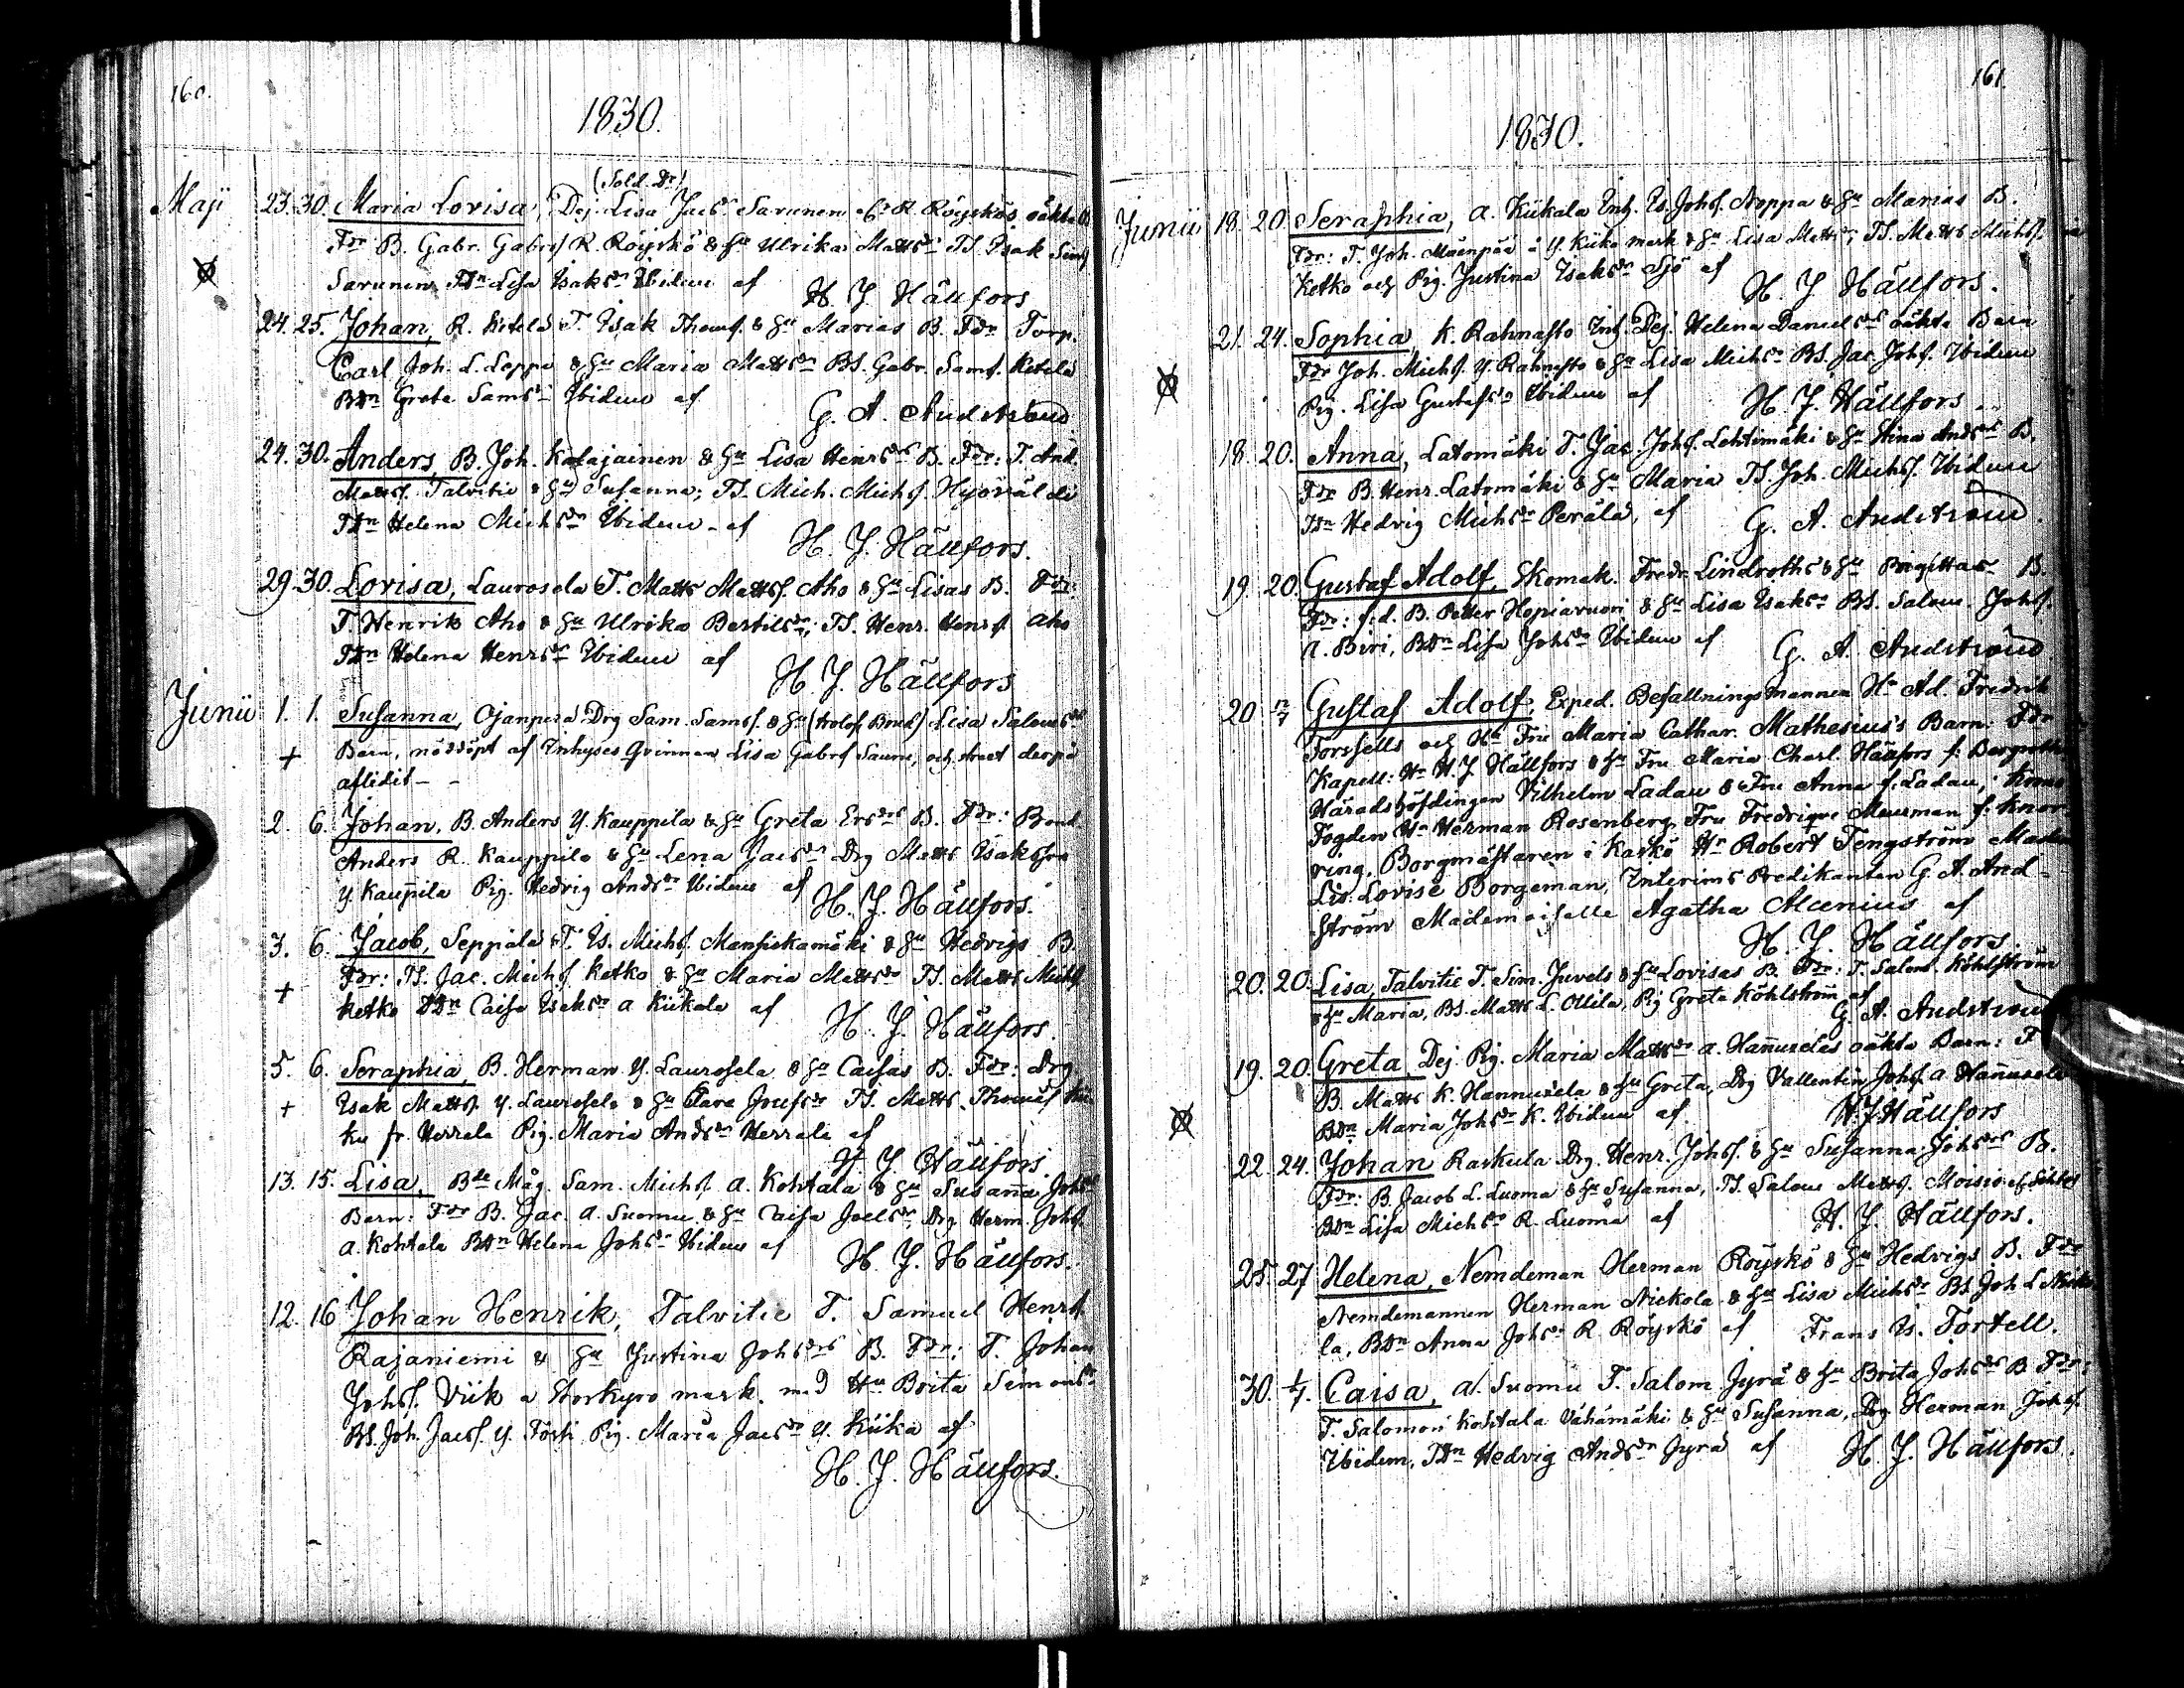 160.
1830.
(Sold. Dr)
Maji 23. 30. Maria Lovisa, Dej. Lisa Jacsdr Sarunem R. Röyskös oäkta B.
Fdr B. Gabr. Gabrs. R. Röyskö & hu Ulrika Mattsdr TS. Isak Sims
Sarunen TDn Lisa Isaksdr Ibidem af H. J. Hällfors
24. 25. Johan, R. Ketola T. Isak Thoms. & hu Marias B. Fdr Torp.
Carl Joh. L. Leppa & hu Maria Mattsdr BS. Gabr. Sams. Ketola
BDn Greta Samsdr Ibidem af G. A. Andström
24. 30. Anders, B. Joh. Kolajainen & hu Lisa Henrsdrs B. Fdr: T. And.
Matts. Talvitie & hu Susanna; TS. Mich. Michs. Hyöväldi
TDn Helena Michsdr Ibidem af H. J. Hällfors.
29. 30. Lovisa, Laurosela T. Matts Matts. Aho & hu Lisas B. Fdr:
T. Henrik Aho & hu Ulrika Bertilsdr; TS. Henr. Henrs. Aho
TDn Helena Henrsdr Ibidem af H. J. Hällfors
Junii 1. 1. Susanna, Ojanperä Drg Sam. Sams. & hu (trolof. Brud) Lisa Salomsdrs
+ Barn, nöddöpt af Inhyses Qvinnan Lisa Gabrs Sauru, och straxt derpå
aflidit - -
2. 6. Johan, B. Anders Y. Kauppila & hu Greta Ersdrs B. Fdr: Bond.
Anders R. Kauppila & hu Lena Jacsdr Drg Matts Isaksson
Y. Kauppila Pig. Hedvig Andsdr Ibidem af H. J. Hällfors.
3. 6. Jacob, Seppälä T. Is. Michs. Mansikamäki & hu Hedvigs B.
+ Fdr: TS. Jac. Michs. Ketko & hu Maria Mattsdr TS. Matts Michs.
Ketko TDn Caisa Isaksdr A. Kiikala af H. J. Hällfors.
5. 6. Seraphia, B. Herman Y. Laurosela & hu Caisas B. Fdr: Drg
+ Isak Matts. Y. Laurosela & hu Clara Josefsdr TS. Matts Thomas
ku fr. Herrala Pig. Maria Andsdr Herrala af
H. J. Hällfors
13. 15. Lisa, Bds Måg. Sam. Michs. A. Kohtala & hu Susanna Johsdrs
Barn: Fdr B. Jac. A. Suomu & hu Caisa Joelsdr, Drg Herm. Johs.
A. Kohtala BDn Helena Johsdr Ibidem af H. J. Hällfors.
12. 16 Johan Henrik, Talvitie T. Samuel Henrs.
Rajaniemi & hu Justina Johsdrs B. Fdr: T. Johan
Johs. Viik a Storkyro mark. med Hu Brita Simonsdr
BS. Joh. Jacs. Y. Försti Pig. Maria Jacsdr Y. Kiika af
H. J. Hällfors.
161.
1830.
Junii 18. 20. Seraphia, A. Kiikala Inh. Is. Johs. Noppa & hu Marias B.
Fdr: T. Joh. Mäenpää å Y. Kiika mark & hu Lisa Mattsdr; TS. Matts Michs.
Ketko och Pig. Justina Isaksdr Sjö af H. J. Hällfors.
21. 24. Sophia, K. Rahnasto Inh. Dej. Helena Danielsdrs oäkta Barn
Fdr Joh. Michs. Y. Rahnasto & hu Lisa Michsdr BS. Jac. Johs. Ibidem
Pig. Lisa Gustafsdr Ibidem af H. J. Hällfors
18. 20. Anna, Latomäki T. Jac. Johs. Lehtimäki & hu Stina Andsdrs B.
Fdr B. Henr. Latomäki & hu Maria TS. Joh. Michs. Ibidem
TDn Hedvig Michsdr Perälä, af G. A. Andström.
19. 20. Gustaf Adolf, Skomak. Fredr. Lindroths & hu Brigittas B.
Fdr: f.d. B. Petter Hopiavuori & hu Lisa Isaksdr BS. Salom. Johs.
A. Biri, BDn Lisa Johsdr Ibidem af G. A. Andström
20 Gustaf Adolf, Exped. Befallningsmannen Hr Ad. Fredrik
Forssells och Hs Fru Maria Cathar. Mathesius's Barn: Fdr
Kapell: Hr H. J. Hällfors & hs Fru Maria Charl. Hällfors f: Bergroth
Häradshöfdingen Vilhelm Ladau & Fru Anna f: Ladau; Krono
Fogden Hr Herman Rosenberg, Fru Fredrique Meurman f: Knor-
ring, Borgmästaren i Kaskö Hr Robert Tengström Madm
Lis. Lovise Borgeman, Interims Predikanten G. A. And-
ström Mademoiselle Agatha Alcenius af
H. J. Hällfors.
20. 20. Lisa, Talvitie T. Sim. Juvels & hu Lovisas B. Fdr: T. Salom. Köhlström
& hu Maria, BS. Matts L. Ollila, Pig Greta Köhlström af
G. A. Andström
19. 20. Greta, Dej. Pig. Maria Mattsdr A. Hannuxelas oäkta Barn: F
B. Matts K. Hannuxela & hu Greta, Drg Vallentin Johs. A. Hannuxela
BDn Maria Johsdr K. Ibidem af H. J. Hällfors
22. 24. Johan Raskula Drg. Henr. Johs. & hu Susanna Johsdrs B.
Fdr: B. Jacob L. Luoma & hu Susanna, TS. Salom Matts. Moisio
BDn Lisa Michsdr R. Luoma af H. J. Hällfors.
25. 27 Helena, Nemdeman Herman Röyskö & hu Hedvigs B. Fdr
Nemdemannen Herman Nickola & hu Lisa Michsdr BS. Joh L. Nicko
la, BDn Anna Johsdr R. Röyskö af Frans Is. Fortell.
30. 1/7. Caisa, A. Suomu T. Salom Jyrä & hu Brita Johsdrs B Fdr:
T. Salomon Kohtala Vähämäki & hu Susanna, Drg Herman Johs.
Ibidem, TDn Hedvig Andsdr Jyrä af H. J. Hällfors.